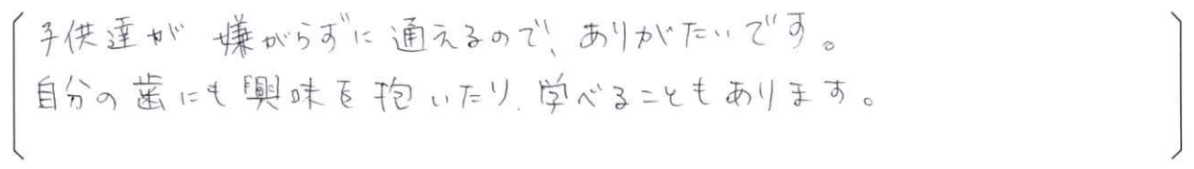 子供達が嫌がらずに通えるので、ありがたいです。
自分の歯にも興味を抱いたり、学べることもあります。